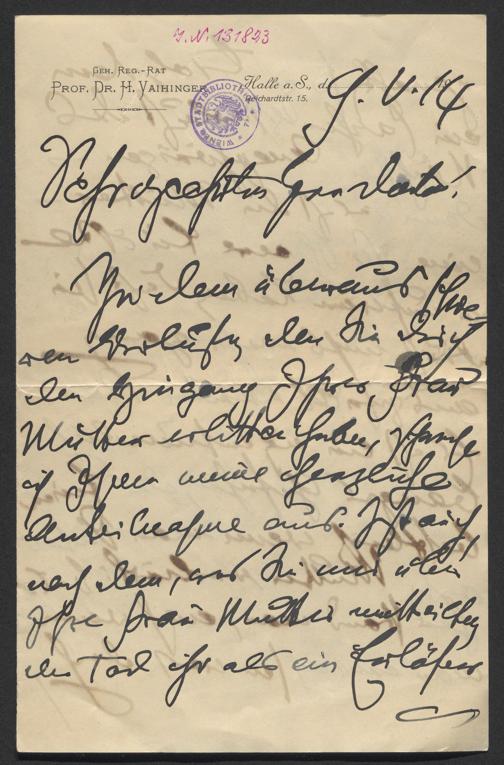 J.N. 131823
GEH. REG.-RAT
PROF. DR. H. VAIHINGER
Halle a. S., d. 9. V. 14
Reichardtstr. 15.
WIENER STADTBIBLIOTHEK
Sehr geehrter Herr Doktor!
Zu dem überaus schwe
ren Verluste, den Sie durch
den Hingang Ihrer Frau
Mutter erlitten haben, spreche
ich Ihnen meine herzliche
Anteilnahme aus. Ist auch,
nach dem, was Sie mir über
Ihre Frau Mutter mitteilten
der Tod ihr als ein Erlöser